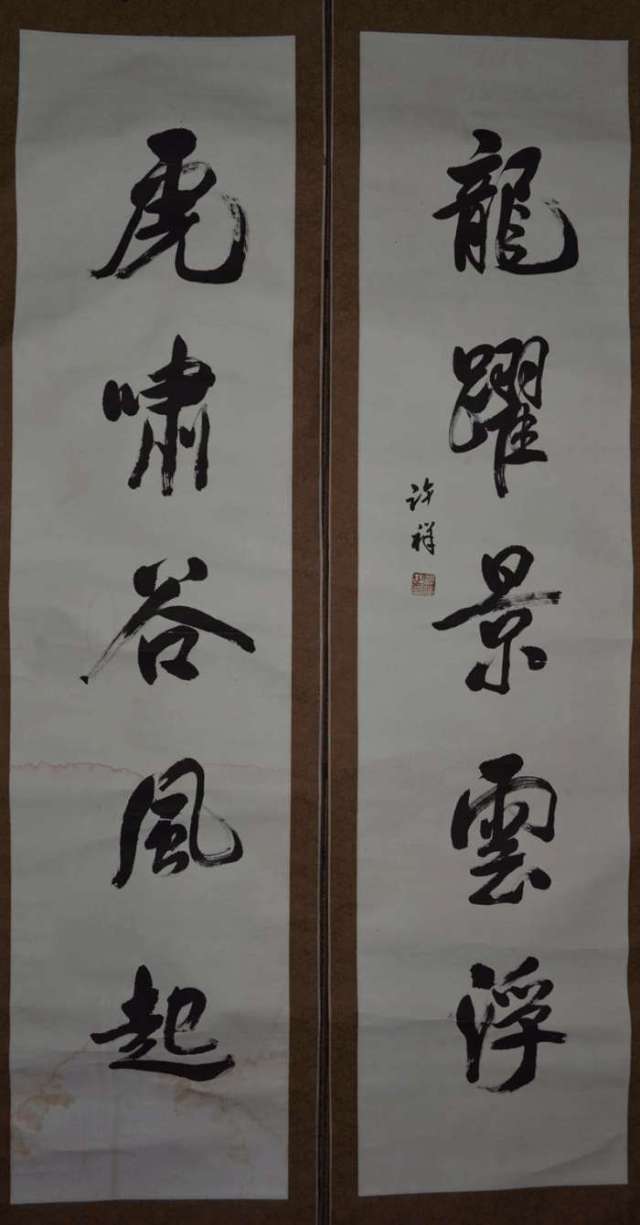 龍躍景雲浮
許祥
虎嘯谷風起